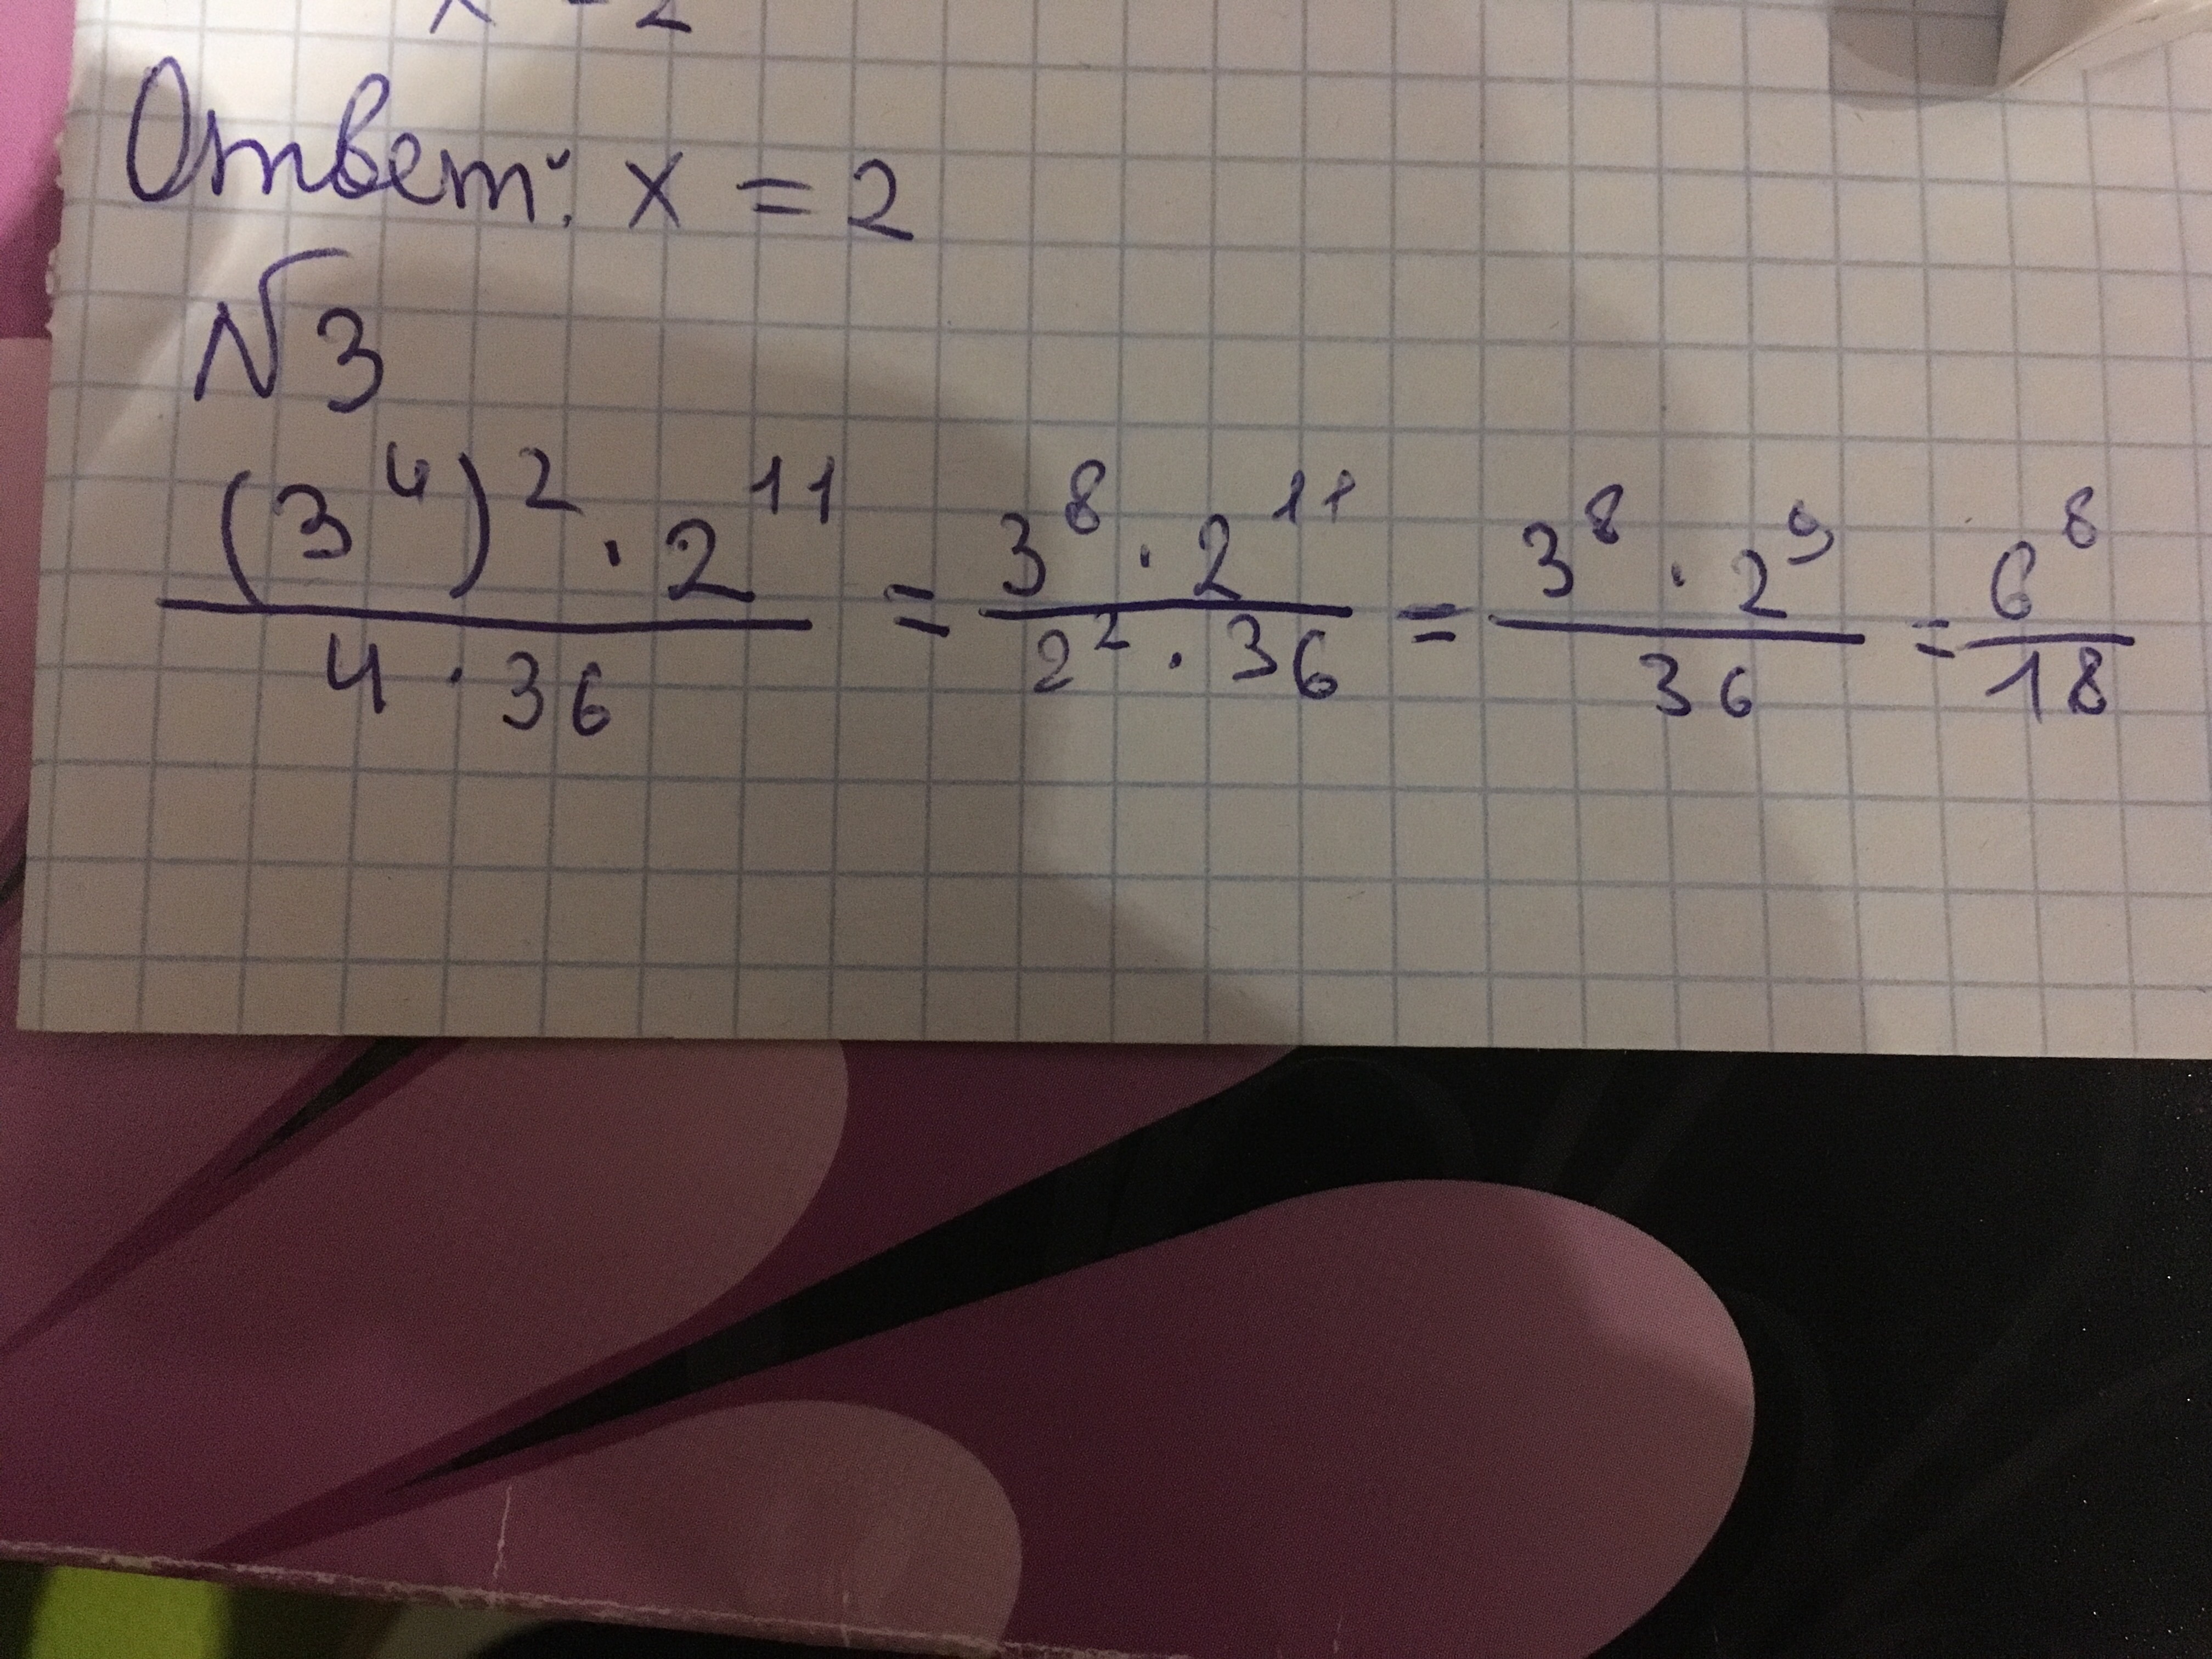 x = 2
Ответ: x = 2
№3
(3^4)^2 · 2^11 / 4 · 36 = 3^8 · 2^11 / 2^2 · 36 = 3^8 · 2^9 / 36 = 6^8 / 18